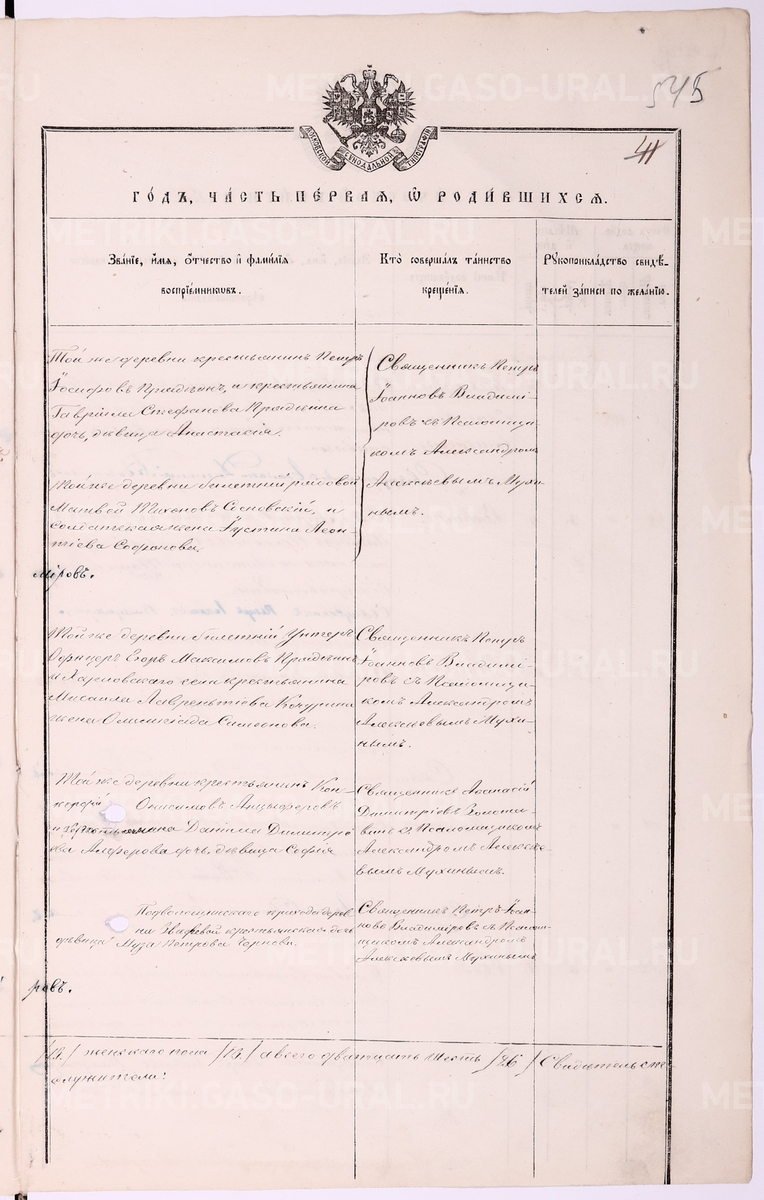 545
41
МОСКОВСКОЙ СѴНОДАЛЬНОЙ ТИПОГРАФІИ
ГО́ДЪ, ЧА́СТЬ ПЕ́РВАЯ, Ѡ РОДИ́ВШИХСЯ.
Зва́нїе, и́мѧ, ѻ҆́тчество и҆ фами́лїѧ
воспрїе́мникѡвъ.
Кто̀ соверша́лъ та́инство
креще́нїѧ.
Рꙋкоприкла́дство свидѣ́-
телей за́писи по жела́нїю.
Той же деревни крестьянинъ Петръ
Іосифовъ и крестьянина
Гавріила Стефанова
дочь, дѣвица Анастасія.
Священникъ Петръ
Іоанновъ Владимі-
ровъ съ Псаломщи-
комъ Александромъ
Алексѣевымъ Мухи-
нымъ.
Той же деревни билетный рядовой
Матвей Тихоновъ Сосновскій, и
солдатская жена Іустина Леон-
тіева Софонова.
міровъ.
Той же деревни билетный Унтеръ
Офицеръ Егоръ Максимовъ
и села крестьянина
Лаврентіева
жена Олимпіада Симеонова.
Священникъ Петръ
Іоанновъ Владимі-
ровъ съ Псаломщи-
комъ Александромъ
Алексѣевымъ Мухи-
нымъ.
Той же деревни крестьянинъ Кон-
кордій Онисимовъ Анцыферовъ
и крестьянина Даніила Димитріе-
ва Алферова дочь, дѣвица Софія
Священникъ Аѳанасій
Димитріевъ
съ Псаломщикомъ
Александромъ Алексѣе-
вымъ Мухинымъ.
прихода дерев-
ни крестьянская дочь
дѣвица Муза Петрова
Священникъ Петръ Іоан-
новъ Владиміровъ съ Псалом-
щикомъ Александромъ
Алексѣевымъ Мухинымъ
ровъ.
/13./ женскаго пола /13./ а всего двадцать шесть /26/ Свидѣтельств